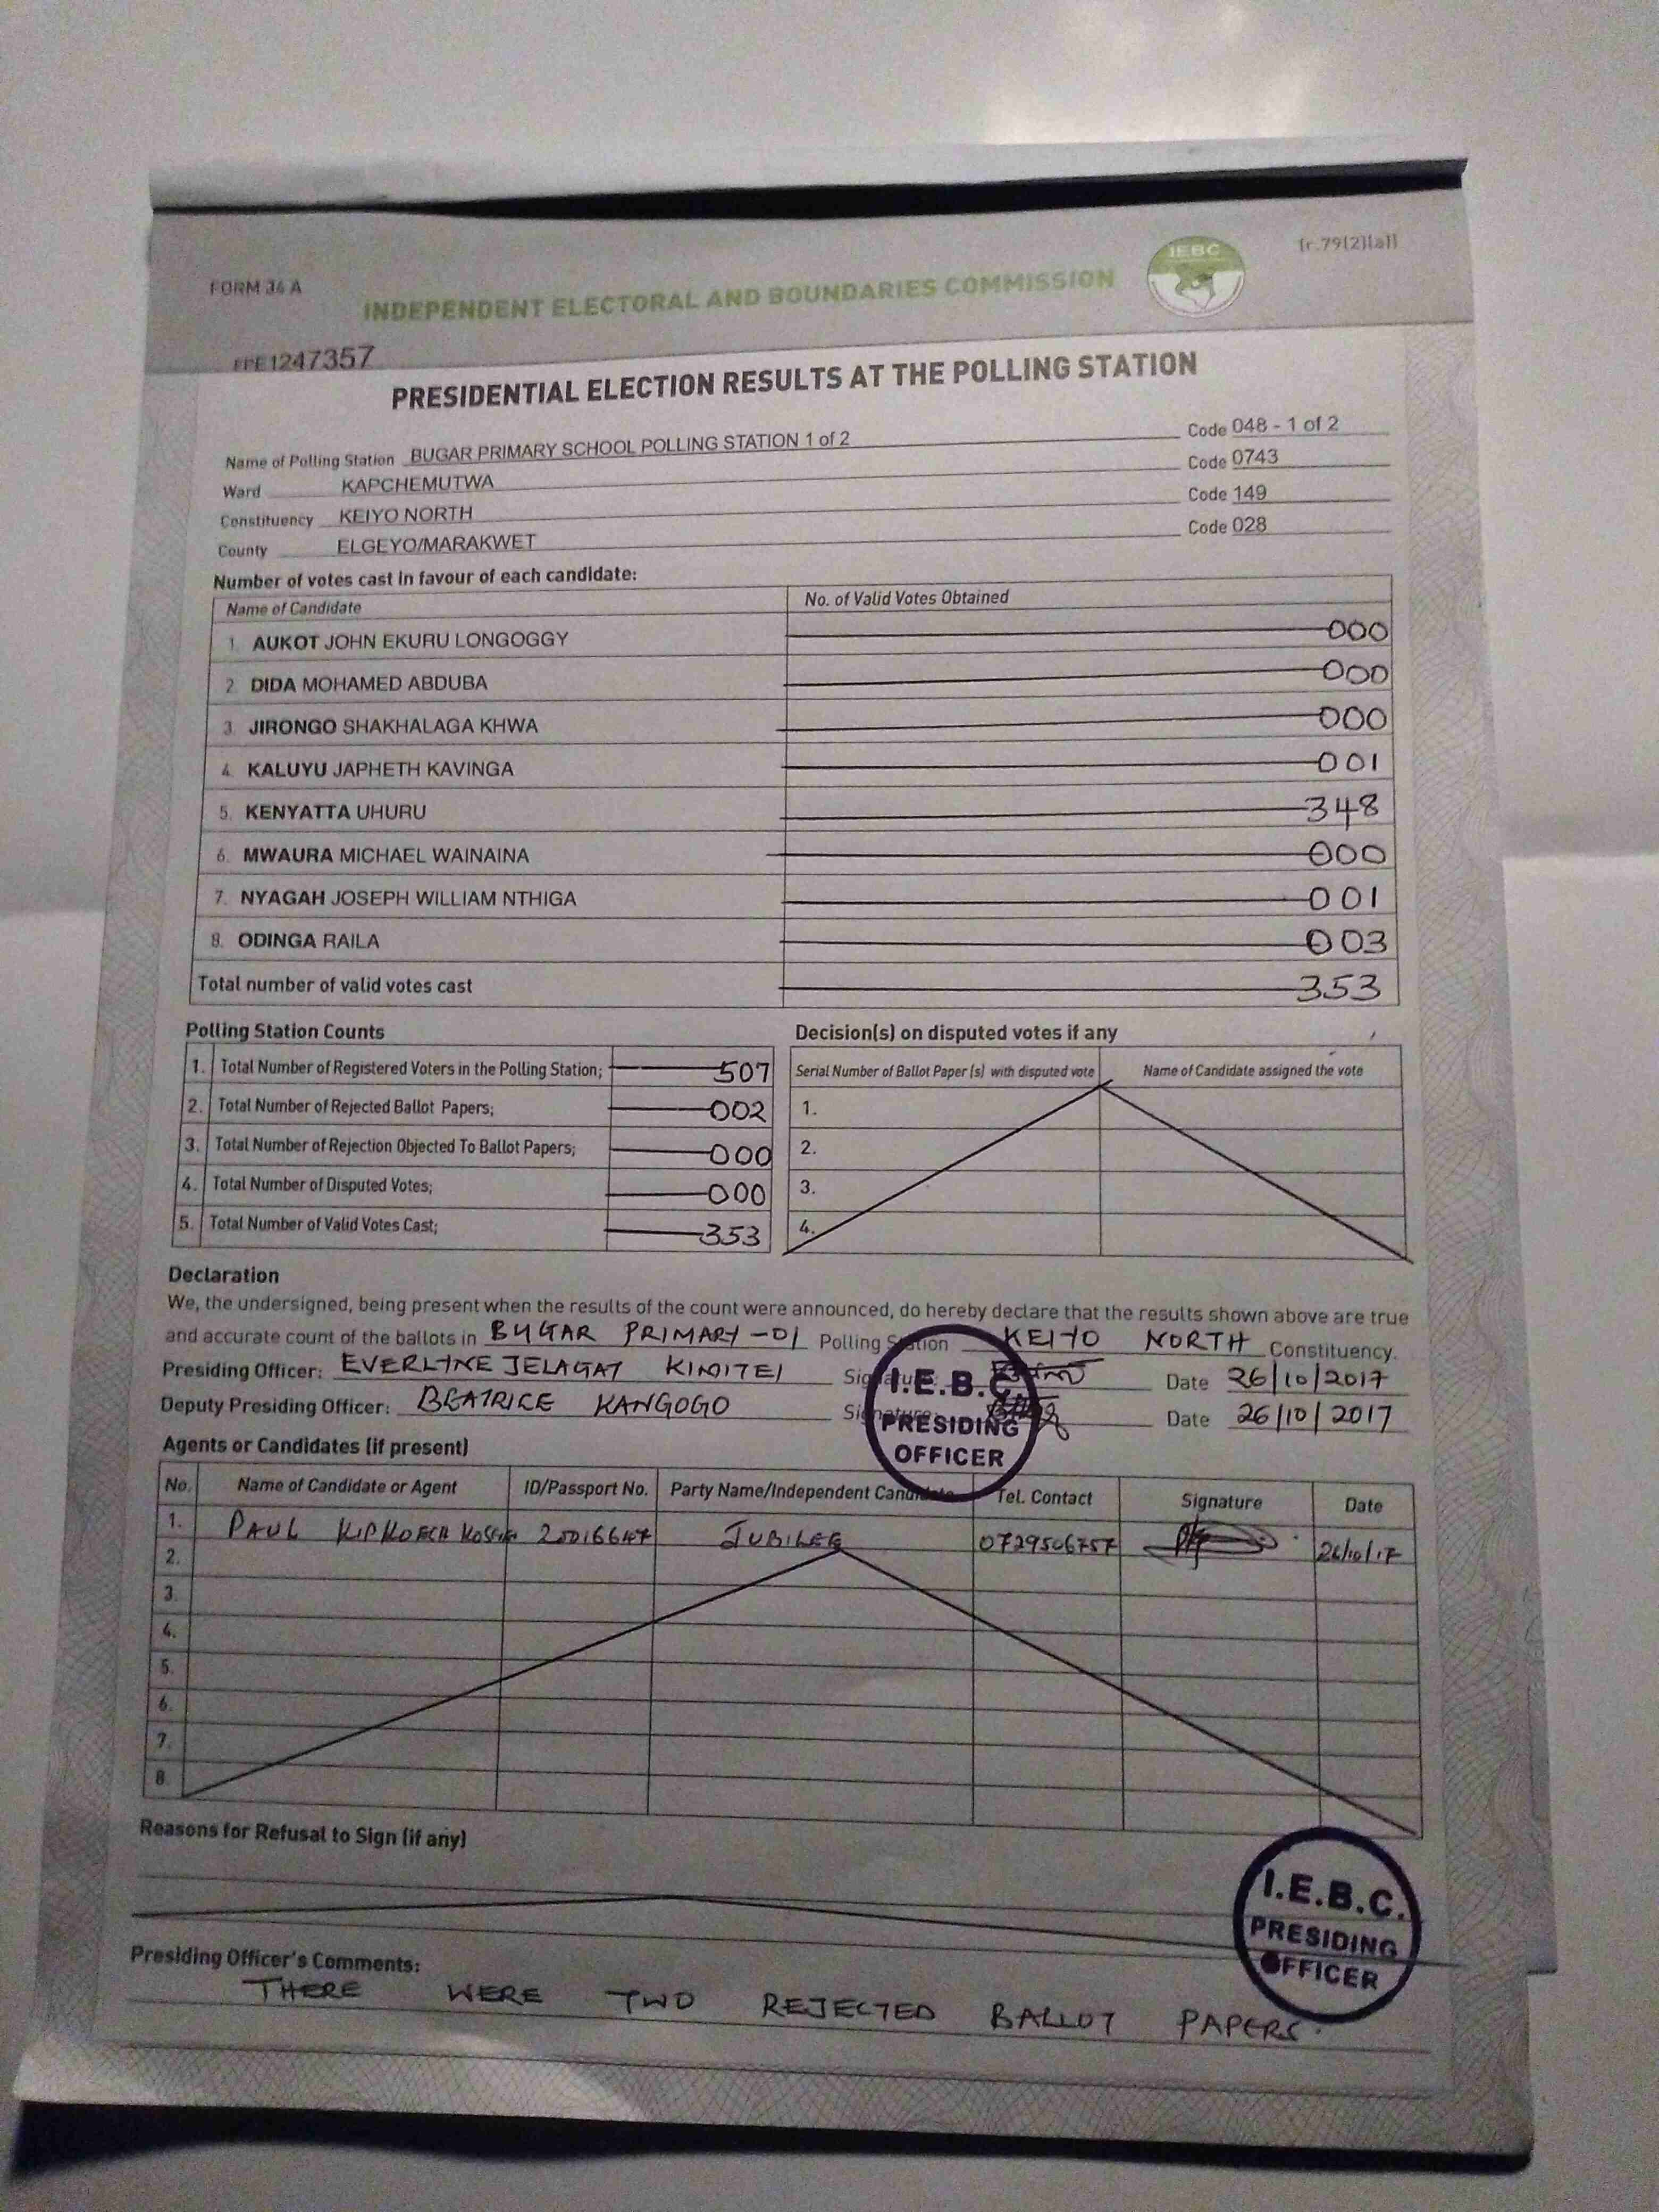 (r.79(2)(a))
IEBC
FORM 34 A
INDEPENDENT ELECTORAL AND BOUNDARIES COMMISSION
1247357
PRESIDENTIAL ELECTION RESULTS AT THE POLLING STATION
Name of Polling Station BUGAR PRIMARY SCHOOL POLLING STATION 1 of 2 Code 048 - 1 of 2
Ward KAPCHEMUTWA Code 0743
Constituency KEIYO NORTH Code 149
County ELGEYO/MARAKWET Code 028
Number of votes cast in favour of each candidate:
Name of Candidate No. of Valid Votes Obtained
1. AUKOT JOHN EKURU LONGOGGY 000
2. DIDA MOHAMED ABDUBA 000
3. JIRONGO SHAKHALAGA KHWA 000
4. KALUYU JAPHETH KAVINGA 001
5. KENYATTA UHURU 348
6. MWAURA MICHAEL WAINAINA 000
7. NYAGAH JOSEPH WILLIAM NTHIGA 001
8. ODINGA RAILA 003
Total number of valid votes cast 353
Polling Station Counts
1. Total Number of Registered Voters in the Polling Station; 507
2. Total Number of Rejected Ballot Papers; 002
3. Total Number of Rejection Objected To Ballot Papers; 000
4. Total Number of Disputed Votes; 000
5. Total Number of Valid Votes Cast; 353
Decision(s) on disputed votes if any
Serial Number of Ballot Paper (s) with disputed vote Name of Candidate assigned the vote
1.
2.
3.
4.
Declaration
We, the undersigned, being present when the results of the count were announced, do hereby declare that the results shown above are true
and accurate count of the ballots in BUGAR PRIMARY -01 Polling Station KEIYO NORTH Constituency.
Presiding Officer: EVERLYNE JELAGAT KIMITEI Signature: Date 26/10/2017
Deputy Presiding Officer: BEATRICE KANGOGO Signature: Date 26/10/2017
I.E.B.C.
PRESIDING
OFFICER
Agents or Candidates (if present)
No. Name of Candidate or Agent ID/Passport No. Party Name/Independent Candidate Tel. Contact Signature Date
1. PAUL KIPKOECH JUBILEE 0729506757 26/10/17
2.
3.
4.
5.
6.
7.
8.
Reasons for Refusal to Sign (if any)
I.E.B.C.
PRESIDING
OFFICER
Presiding Officer's Comments:
THERE WERE TWO REJECTED BALLOT PAPERS.